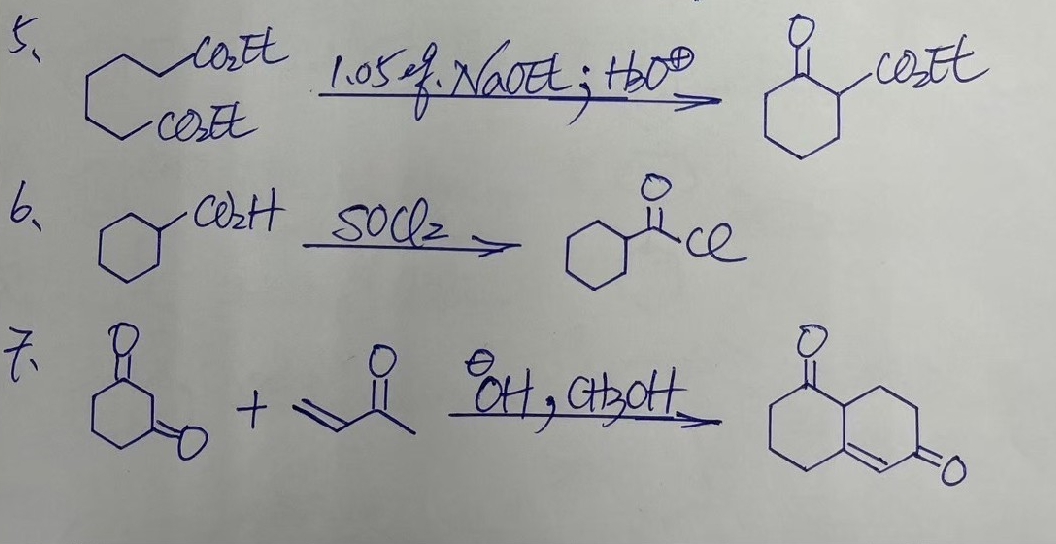 5、 CO₂Et CO₂Et 1.05 eq. NaOEt ; H₃O⊕ O CO₂Et
6、 CO₂H SOCl₂ O Cl
7、 O O + O ⊖OH , CH₃OH O O